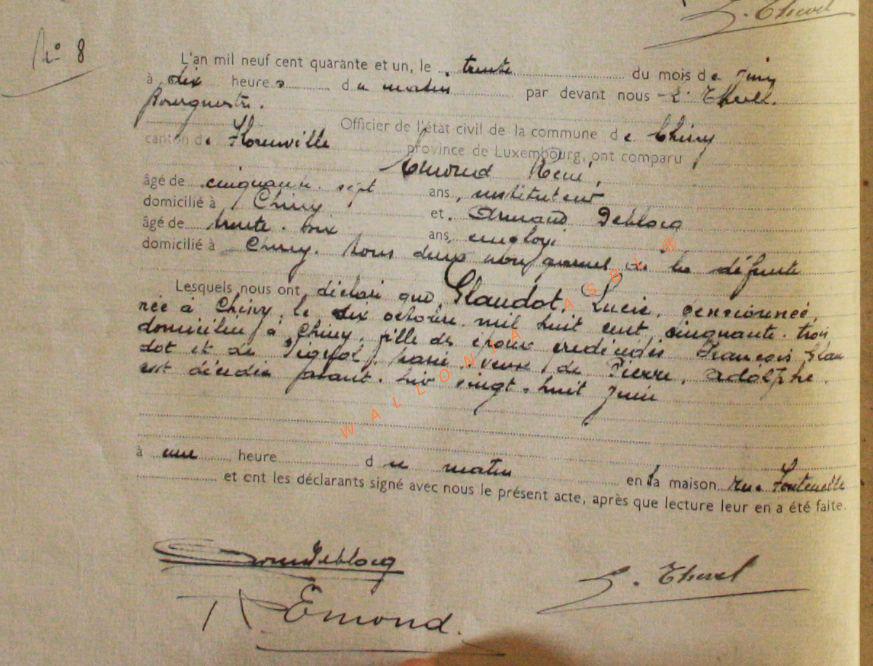 L. Thevel
N° 8
L'an mil neuf cent quarante et un, le trente du mois de juin
à dix heures du matin par devant nous L. Thevel.
Bourgmestre.
Officier de l'état civil de la commune de Chiny
canton de Florenville province de Luxembourg, ont comparu
Emond René,
âgé de cinquante-sept ans, instituteur
domicilié à Chiny et, Armand Deblocq
âgé de trente-trois ans, employé
domicilié à Chiny. tous deux non parents de la défunte
Lesquels nous ont déclaré que, Glaudot, Lucie, pensionnée,
née à Chiny, le dix octobre mil huit cent cinquante-trois
domiciliée à Chiny, fille des époux prédécédés François Glau
dot et de Marie veuve de Pierre, Adolphe.
est décédée vingt-huit juin
à une heure du matin en la maison rue Fontenelle
et ont les déclarants signé avec nous le présent acte, après que lecture leur en a été faite.
Deblocq
L. Thevel
R. Emond
WALLONIA ASBL